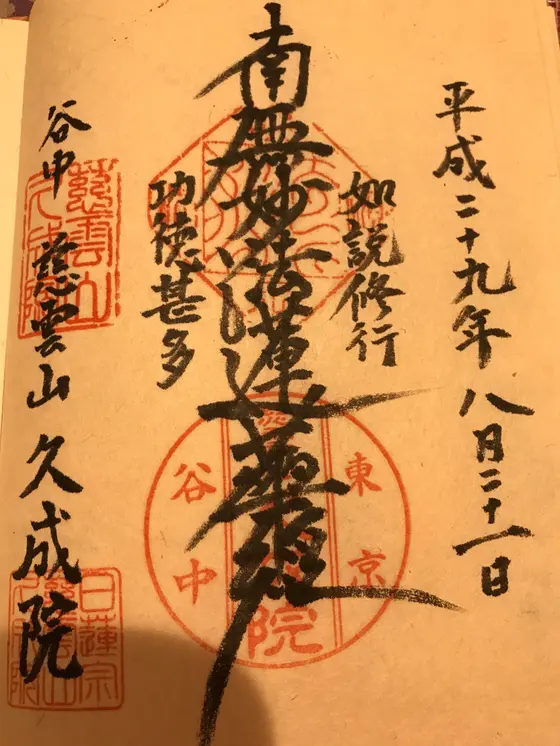 平成二十九年八月二十一日
如説修行
南無妙法蓮華経
功徳甚多
谷中 慈雲山 久成院
東京
谷中
院
慈雲山
久成院
日蓮宗